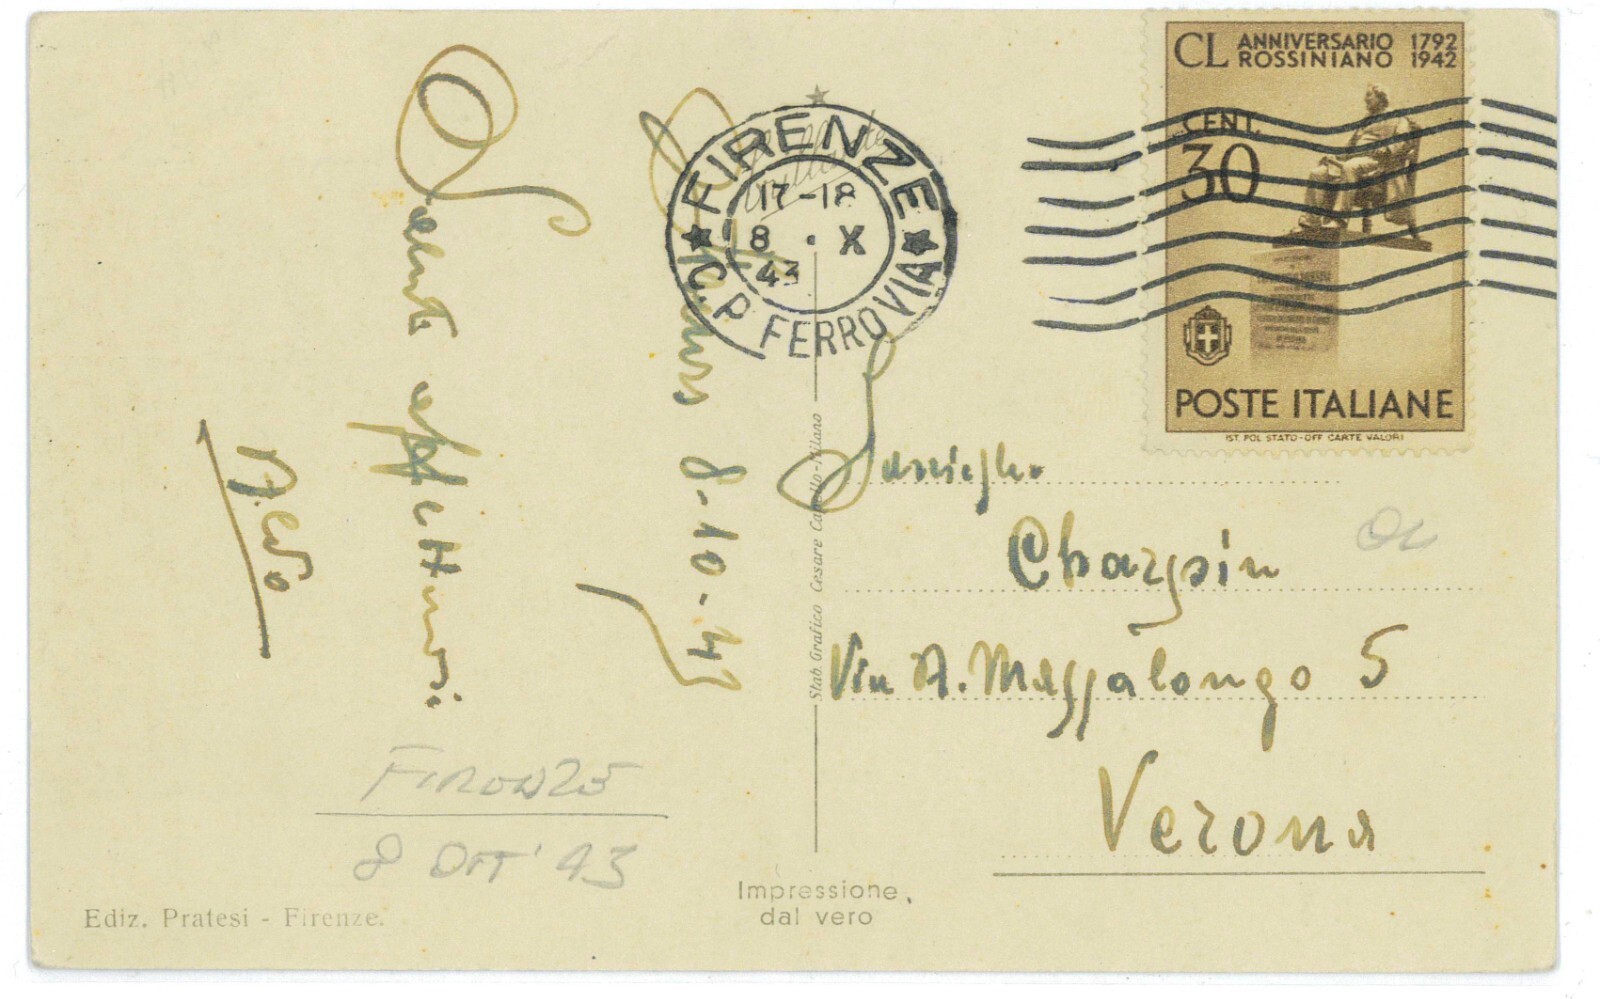 Firenze 8-10-43
Saluti affettuosi
Aldo
FIRENZE
8 OTT' 43
Ediz. Pratesi - Firenze.
Impressione
dal vero
Stab. Grafico Cesare Capello-Milano
FIRENZE
17-18
8 . X
43
C.P. FERROVIA
CL ANNIVERSARIO 1792
ROSSINIANO 1942
CENT.
30
POSTE ITALIANE
IST. POL. STATO-OFF. CARTE VALORI
Famiglia
Charpin
Via A. Massalongo 5
Verona